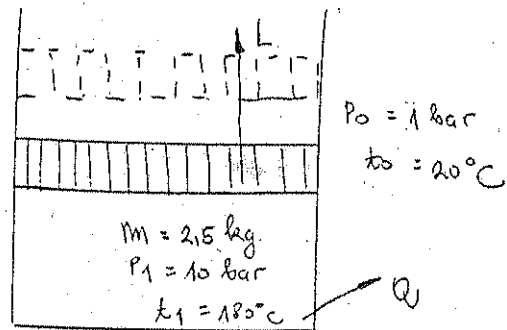 L
P0 = 1 bar
t0 = 20°C
m = 2,5 kg.
P1 = 10 bar
t1 = 180°C
Q